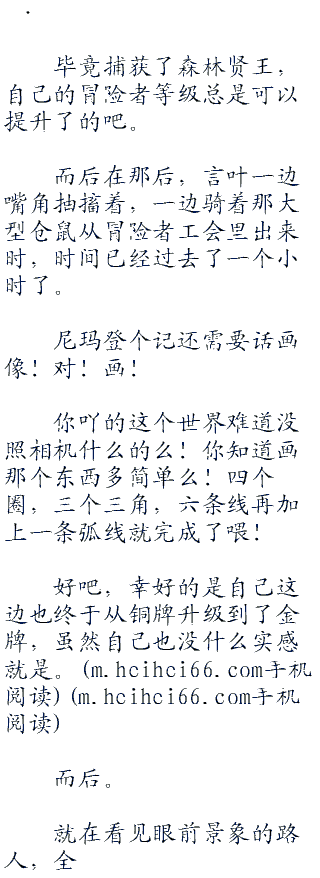 .
毕竟捕获了森林贤王，
自己的冒险者等级总是可以
提升了的吧。
而后在那后，言叶一边
嘴角抽搐着，一边骑着那大
型仓鼠从冒险者工会里出来
时，时间已经过去了一个小
时了。
尼玛登个记还需要话画
像！对！画！
你吖的这个世界难道没
照相机什么的么！你知道画
那个东西多简单么！四个
圈，三个三角，六条线再加
上一条弧线就完成了喂！
好吧，幸好的是自己这
边也终于从铜牌升级到了金
牌，虽然自己也没什么实感
就是。(m.hcihci66.com手机
阅读)(m.hcihci66.com手机
阅读)
而后。
就在看见眼前景象的路
人，全